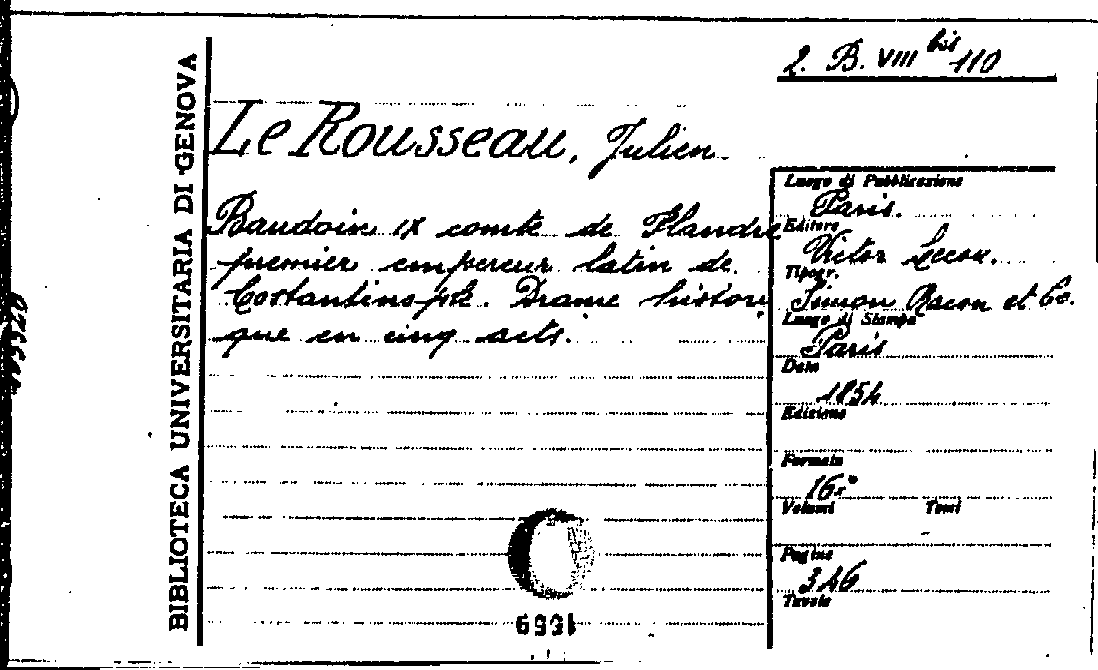 2. B. VIII bis 110
BIBLIOTECA UNIVERSITARIA DI GENOVA
Le Rousseau, Julien.
Baudoin IX comte de Flandre
premier empereur latin de
Costantinople. Drame histori
que en cinq acts.
Luogo di Pubblicazione
Paris.
Editore
Victor Lecou.
Tipogr.
Simon Racon et Co.
Luogo di Stampa
Paris
Data
1854
Edizione
Formato
16°
Volumi Tomi
-
Pagine
346
Tavole
1659